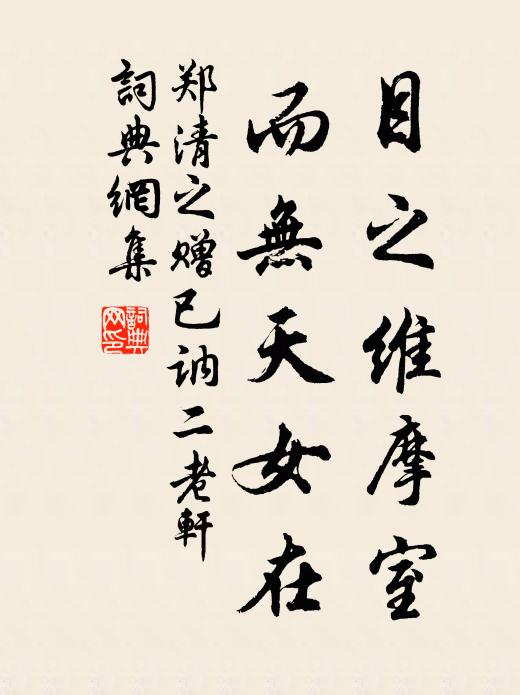 目之維摩室
而無天女在
郑清之赠已讷二老軒
詞典網集
詞典網印